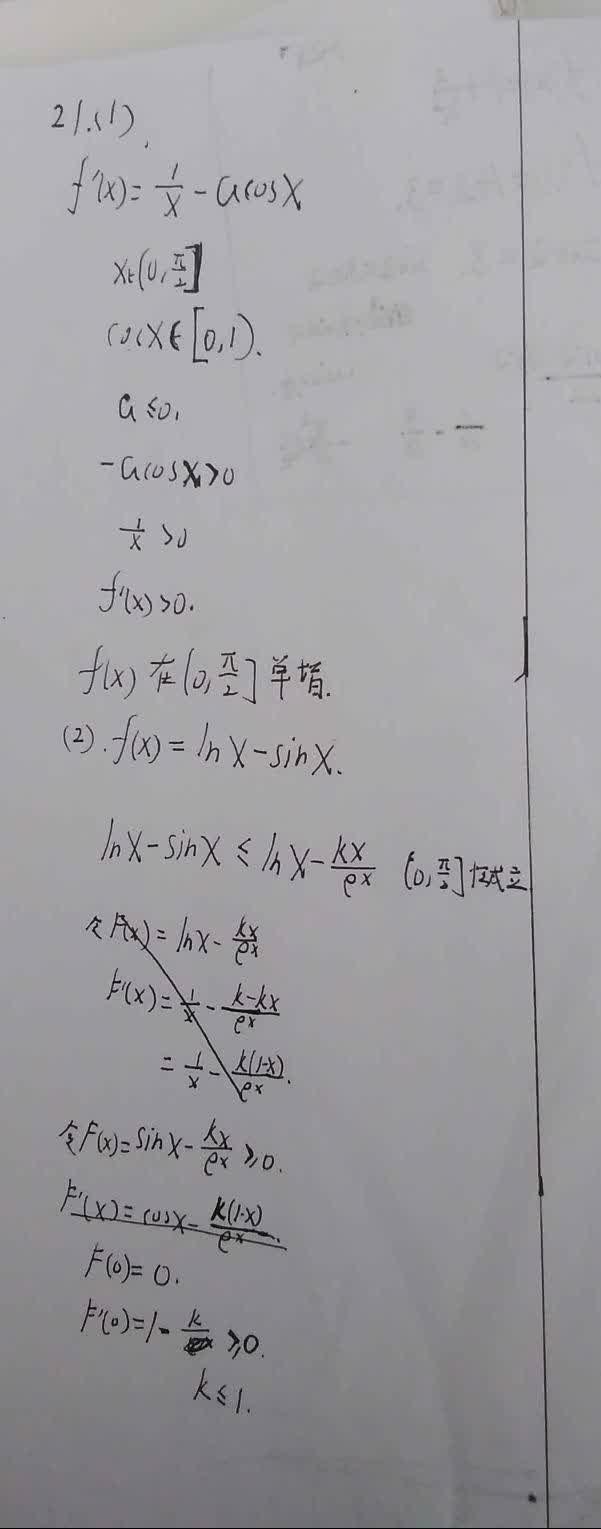 21.(1).
f'(x)=1/x-acosx
x∈(0,π/2]
cosx∈[0,1).
a≤0,
-acosx>0
1/x>0
f'(x)>0.
f(x)在(0,π/2]单增.
(2).f(x)=lnx-sinx.
lnx-sinx≤lnx-kx/e^x (0,π/2]恒成立
令F(x)=lnx-kx/e^x
F'(x)=1/x-(k-kx)/e^x
=1/x-k(1-x)/e^x.
令F(x)=sinx-kx/e^x≥0.
F'(x)=cosx-k(1-x)/e^x.
F(0)=0.
F'(0)=1-k/ ≥0.
k≤1.